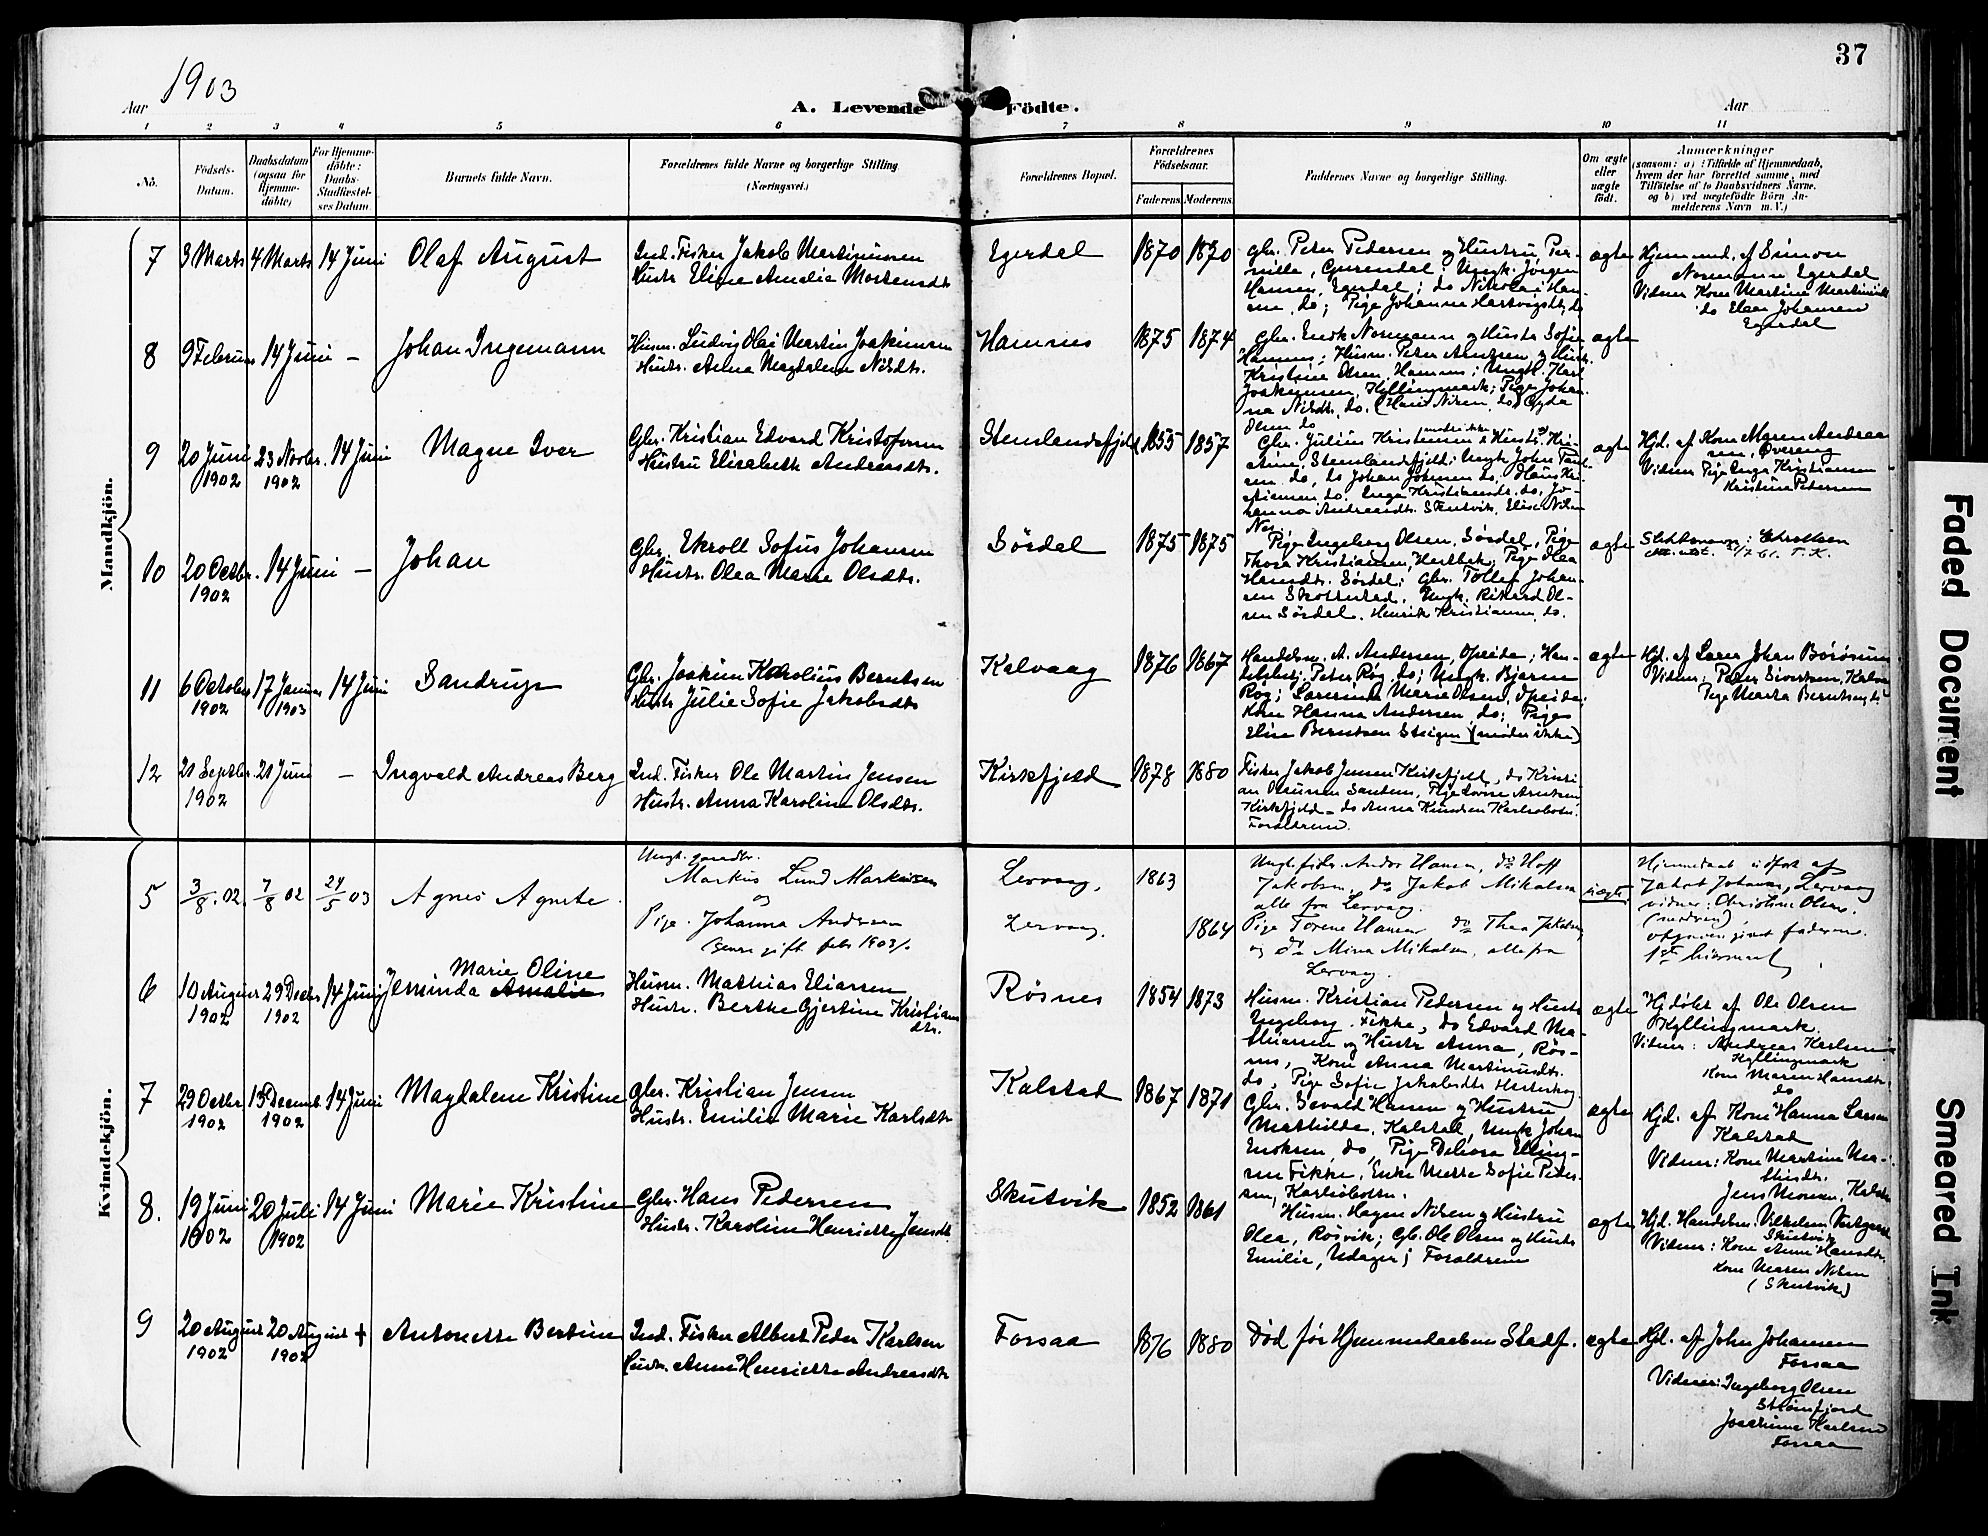 37
Aar 1903
A. Levende Födte.
Aar
1 2 3 4 5 6 7 8 9 10 11
No.
Födsels-Datum.
Daabsdatum (ogsaa for Hjemme-döbte)
For Hjemme-döbte: Daabs-Stadfæstel-ses Datum.
Barnets fulde Navn.
Forældrenes fulde Navne og borgerlige Stilling (Næringsvei.)
Forældrenes Bopæl.
Forældrenes Födselsaar.
Faderens
Moderens
Faddernes Navne og borgerlige Stilling.
Om ægte eller uægte födt.
Anmærkninger
(saasom: a) i Tilfælde af Hjemmedaab,
hvem der har forrettet samme, med
Tilföielse af to Daabsvidners Navne.
og b) ved uægtefödte Börn An-
melderens Navn m. V.)
Mandkjön.
7 3 Marts 4 Marts 14 Juni Olaf August
Ind. Fisker Jakob Martinussen
Hustr. Eline Amalia Mortensdt.
Egerdel 1870 1870
Gbr. Peter Pedersen og Hustru Per-
nille, ; Ungk. Jörgen
Hansen, Egerdel; do Nikolai Han-
sen, do; Pige Johanna Hartvigsdt, do
ægte
Hjemmd. af Simon
Normann Egerdel
Vidner Kone Martine
do Johansen
Egerdel
8 9 Februar 14 Juni – Johan Ingemann
Husm. Ludvig Martin Joakimsen
Hustr. Anna Magdalena Nilsdtr.
Hamnes 1875 1874
Gbr. Normann og Hustr. Sofie
Hamnes; Husm. Peter Arntzen og Hustr.
Kristine Olsen, Hamnes; Ungk. Karl
Joakimsen, Kyllingmark; Pige Johan-
na Nilsdtr. do. Nilsen, do Gyda
Olsen do
ægte
9 20 Juni 1902 23 Novbr. 1902 14 Juni Magne Iver
Gbr. Kristian Edvard Kristofersen
Hustru Elisabeth Andreasdtr.
Stemlandsfjeld 1855 1857
Gbr. Julius Kristiansen & Hustr. Kri-
stine, Stemlandsfjeld; Ungk. John
do, do Johan Johnsen do, Hans Kri-
stiansen do. Inga Kristiansdtr. do, Jo-
hanna Andreasdtr. Skutvik, Elise Nilsen
Nes.
ægte
Hjd. af Kone Maren Andrea-
sen,
Vidner Pige Inga Kristiansen
Kristine Petersen
10 20 Octbr. 1902 14 Juni – Johan
Gbr. Ekroll Sofus Johansen
Hustr. Olea Marie Olsdtr.
Sördel 1875 1875
Pige Ingeborg Olsen, Sördel, Pige
Thora Kristiansen, ; Pige
Hansdtr. Sördel; Gbr. Tollef Johan-
sen , Ungk. Rikard Ol-
sen Sördel. Henrik Kristiansen, do.
ægte
Slektsnavn:
7 61. T.K.
11 6 October 1902 17 Januar 1903 14 Juni Sandrup
Gbr. Joakim Karolius Berntsen
Hustr. Julie Sofie Jakobsdtr
Kalvaag 1876 1867
Handelsm. A. Andersen, Opeide; Han-
Peter Rög, do; Ungk. Bjarne
Rög; Marie Olsen, Opeide;
Kone Hanna Andersen, do; Pige
Elise Berntsen Steigen (möder ikke)
ægte
Hjd. af Johan
Vidner: Peter Sivertsen, Kalvaag
Pige Marta
12 21 Septbr. 1902 21 Juni – Ingvald Andreas Berg
Ind. Fisker Ole Martin Jensen
Hustr. Anna Karoline Olsdtr.
Kirkfjeld 1878 1880
Fisker Jakob Jensen Kirkefjeld, do Kristi-
an , Pige Arntsen
Kirkfjeld – do Anna Knudsen
Forældrene.
Kvindekjön.
5 3/8.02. 7/8 02 24/5 03 Agnes Agnete
Ungk. gaardbr.
Markus Lund Markussen
og
Pige. Johanna Andersen
gift febr 1903.
Lervaag, 1863
Lervaag. 1864
Ungk. fisker Andor Hansen, do Hoff
Jakobsen, do Jakob Mikalsen
alle fra Lervaag.
Pige Torene Hansen do Thea Jakobsen
og do Mina Mikalsen, alle fra
Lervaag.
uægte
Hjemmedaab udfört af
Jakob Johansen, Lervaag
vidner: Christine Olsen.
opgaven givet faderen.
6 10 August 1902 29 Decbr 1902 14 Juni Jeminda Marie Oline Amalie
Husm. Mathias Eliassen
Hustr. Berthe Gjertine Kristians-
dtr.
Rösnes 1854 1873
Husm. Kristian Pedersen og Hustr.
Ingeborg. Fikke, do Edvard Ma-
thiassen og Hustr. Anna, Rös-
nes, Kone Anna Martinusdtr.
do, Pige Sofie Jakobsdtr
ægte
Hjdöbt af Ole Olsen
Kyllingmark.
Vidner: Andreas Karlsen
Kyllingmark
Kone Maren Hansdtr.
do
7 29 Octbr 1902 15 Decemb. 1902 14 Juni Magdalene Kristine
Gbr. Kristian Jensen
Hustr. Emilie Marie Karlsdtr
Kalstad 1867 1871
Gbr. Sevald Hansen og Hustru
Mathilde, Kalstad, Ungk Johan
do, Pige Elling-
sen Fikke, Enke Mette Sofie Peder-
sen,
ægte
Hjd. af Kone Hanna Larsen
Kalstad
Vidner: Kone Martine Ma-
thisdtr.
Jens
8. 19 Juni 1902 20 Juli 1902 14 Juni Marie Kristine
Gbr. Hans Pedersen
Hustr. Karoline Henriette Jensdtr
Skutvik 1852 1861
Husm. Hagne Nilsen og Hustru
Olea, Rösvik; Gb. Ole Olsen og Hustr
Emilie, Udager; Forældrene
ægte
Hjd. Handelsm. Vilhelm
Skutvik
Vidner: Kone Anne Hansdtr.
Kone Maren Nilsen
(Skutvik)
9 20 August 1902 20 August 1902 + Antonette Bertine
Ind. Fisker Albert Peder Karlsen
Hustr. Anne Henriette Andreasdtr
Forsaa 1876 1880
Död för Hjemmedaabens Stadf.
ægte
Hjd. af John Johansen
Forsaa
Vidner: Ingeborg Olsen
Strömfjord
Karlsen
Forsaa
Faded Document
Smeared Ink